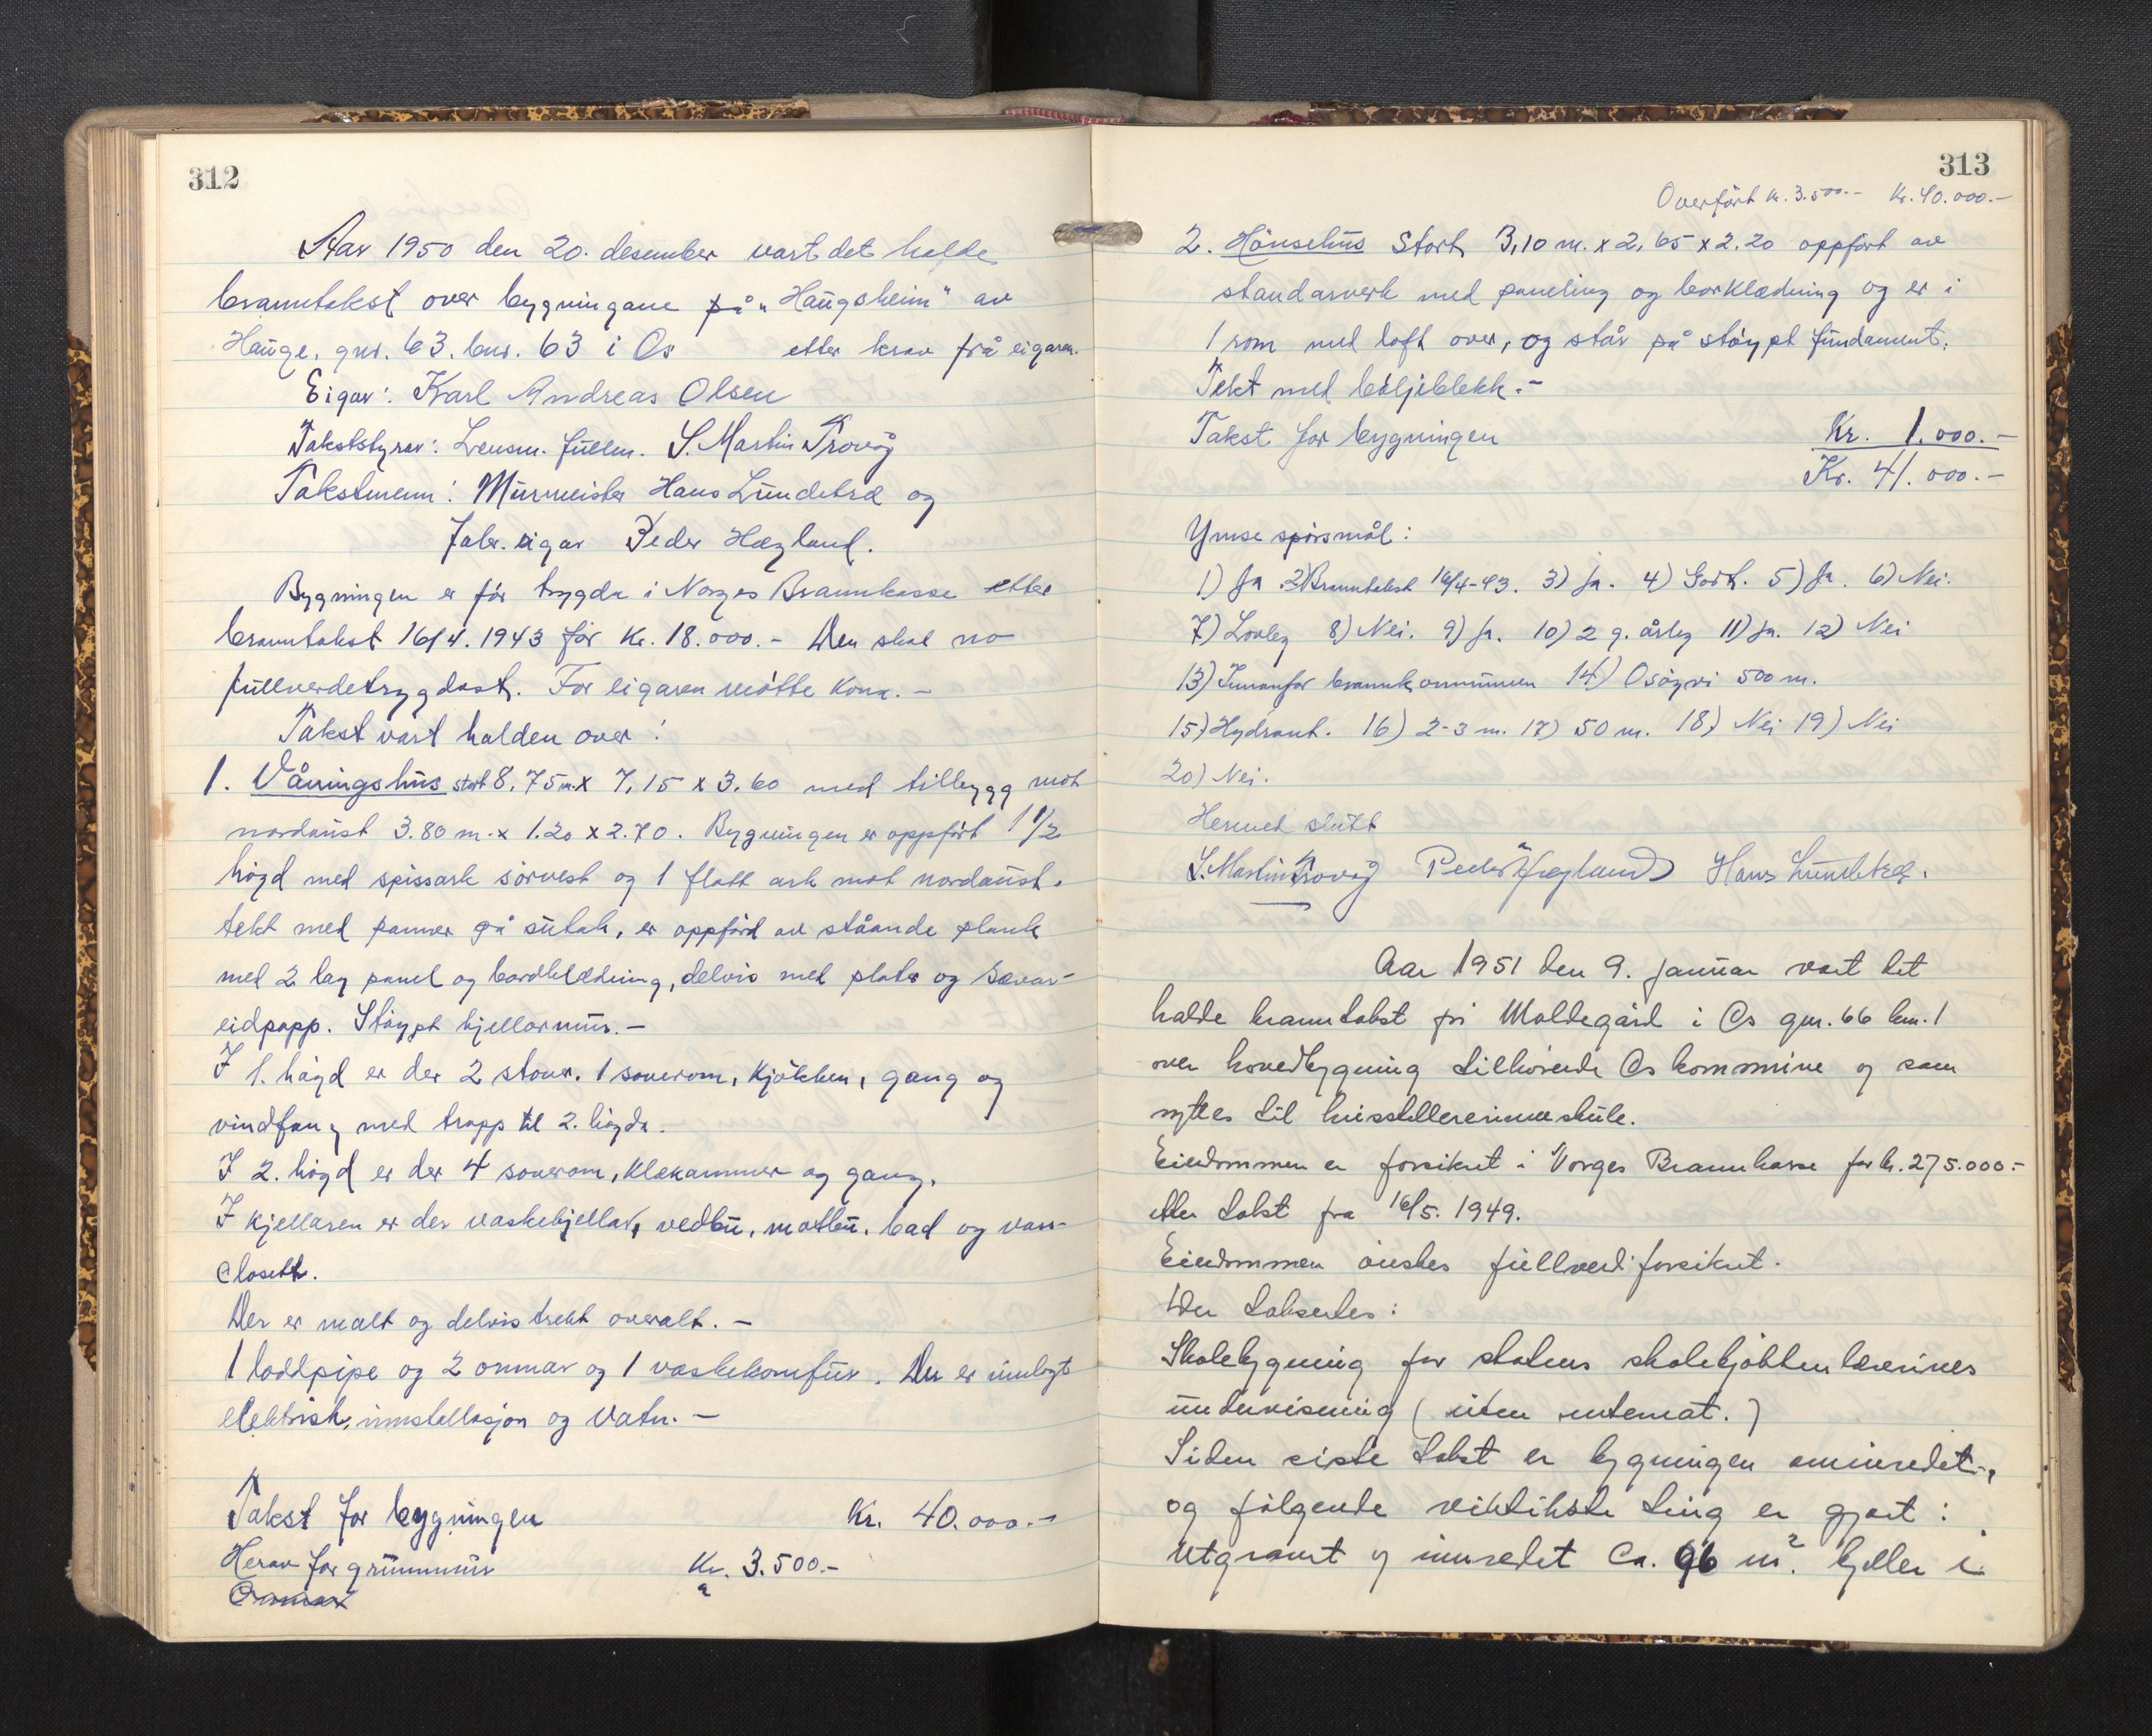 312
Aar 1950 den 20. desember vart det halde
branntakst over bygningane på „Haugsheim" av
Hauge, gnr. 63. bnr. 63 i Os etter krav frå eigaren.
Eigar: Karl Andreas Olsen
Takststyrar: Lensm. fullm. S. Martin Trovåg
Takstmenn: Murmeister Hans Lundetræ og
Fabr. eigar Peder Hægland.
Bygningen er før trygda i Norges Brannkasse etter
branntakst 16/4. 1943 før Kr. 18.000.- Den skal no
fullverdetrygdast. For eigaren møtte kona. -
Takst vart halden over:
1. Våningshus stort 8.75 m. x 7,15 x 3.60 med tilbygg mot
nordaust 3.80 m. x 1.20 x 2.70. Bygningen er oppført 1 1/2
høgd med spissark sørvest og 1 flatt ark mot nordaust.
tekt med panner på sutak, er oppførd av ståande plank
med 2 lag panel og bordklædning, delvis med plater og Sævar-
eidpapp. Støypt kjellarmur. -
I 1. høgd er der 2 stover. 1 soverom, kjøkken, gang og
vindfang med trapp til 2. høgda.
I 2. høgd er der 4 soverom, klekammer og gang.
I kjellaren er der vaskekjellar, vedbu, matbu. bad og vass-
closett.
Der er malt og delvis trekt overalt. -
1 loddpipe og 2 omnar og 1 vaskekomfur. Der er innlagt
elektrisk, innstallasjon og Vatn. -
Takst for bygningen Kr. 40.000.-
Herav for grunnmur Kr. 3.500.-
313
Overført kr. 3.500.- Kr. 40.000.-
2. Hønsehus Stort 3,10 m. x 2,65 x 2.20 oppført av
standarverk med paneling og borklædning og er i
1 rom med loft over, og står på støypt fundament.
Tekt med bøljeblekk. -
Takst for bygningen Kr. 1.000.-
Kr. 41.000.-
Ymse spørsmål:
1) Ja 2) Branntakst 16/4-43. 3) Ja. 4) Godt. 5) Ja. 6) Nei.
7) Lovleg 8) Nei. 9) Ja. 10) 2 g. årleg 11) Ja. 12) Nei
13) Innanfor brannkommunen 14) Osøyri 500 m.
15) Hydrant. 16) 2-3 m. 17) 50 m. 18) Nei 19) Nei
20) Nei.
Hermed slutt
S. Martin Trovåg Peder Hægland Hans Lundetræ.
Aar 1951 den 9. januar vart det
halde branntakst på Moldegård i Os gnr. 66 bnr. 1
over hovedbygning tilhørende Os kommune og som
nyttes til husstellærerinneskule.
Eiendommen er forsikret i Norges Brannkasse for kr. 275.000.-
etter takst fra 16/5. 1949.
Eiendommen ønskes fullverdiforsikret.
Der taksertes:
Skolebygning for statens skolekjøkkenlærerinnes
undervisning (uten internat.)
Siden siste takst er bygningen ominredet,
og følgende viktikste ting er gjort:
Utgravet og innredet Ca. 96 m². kjeller i